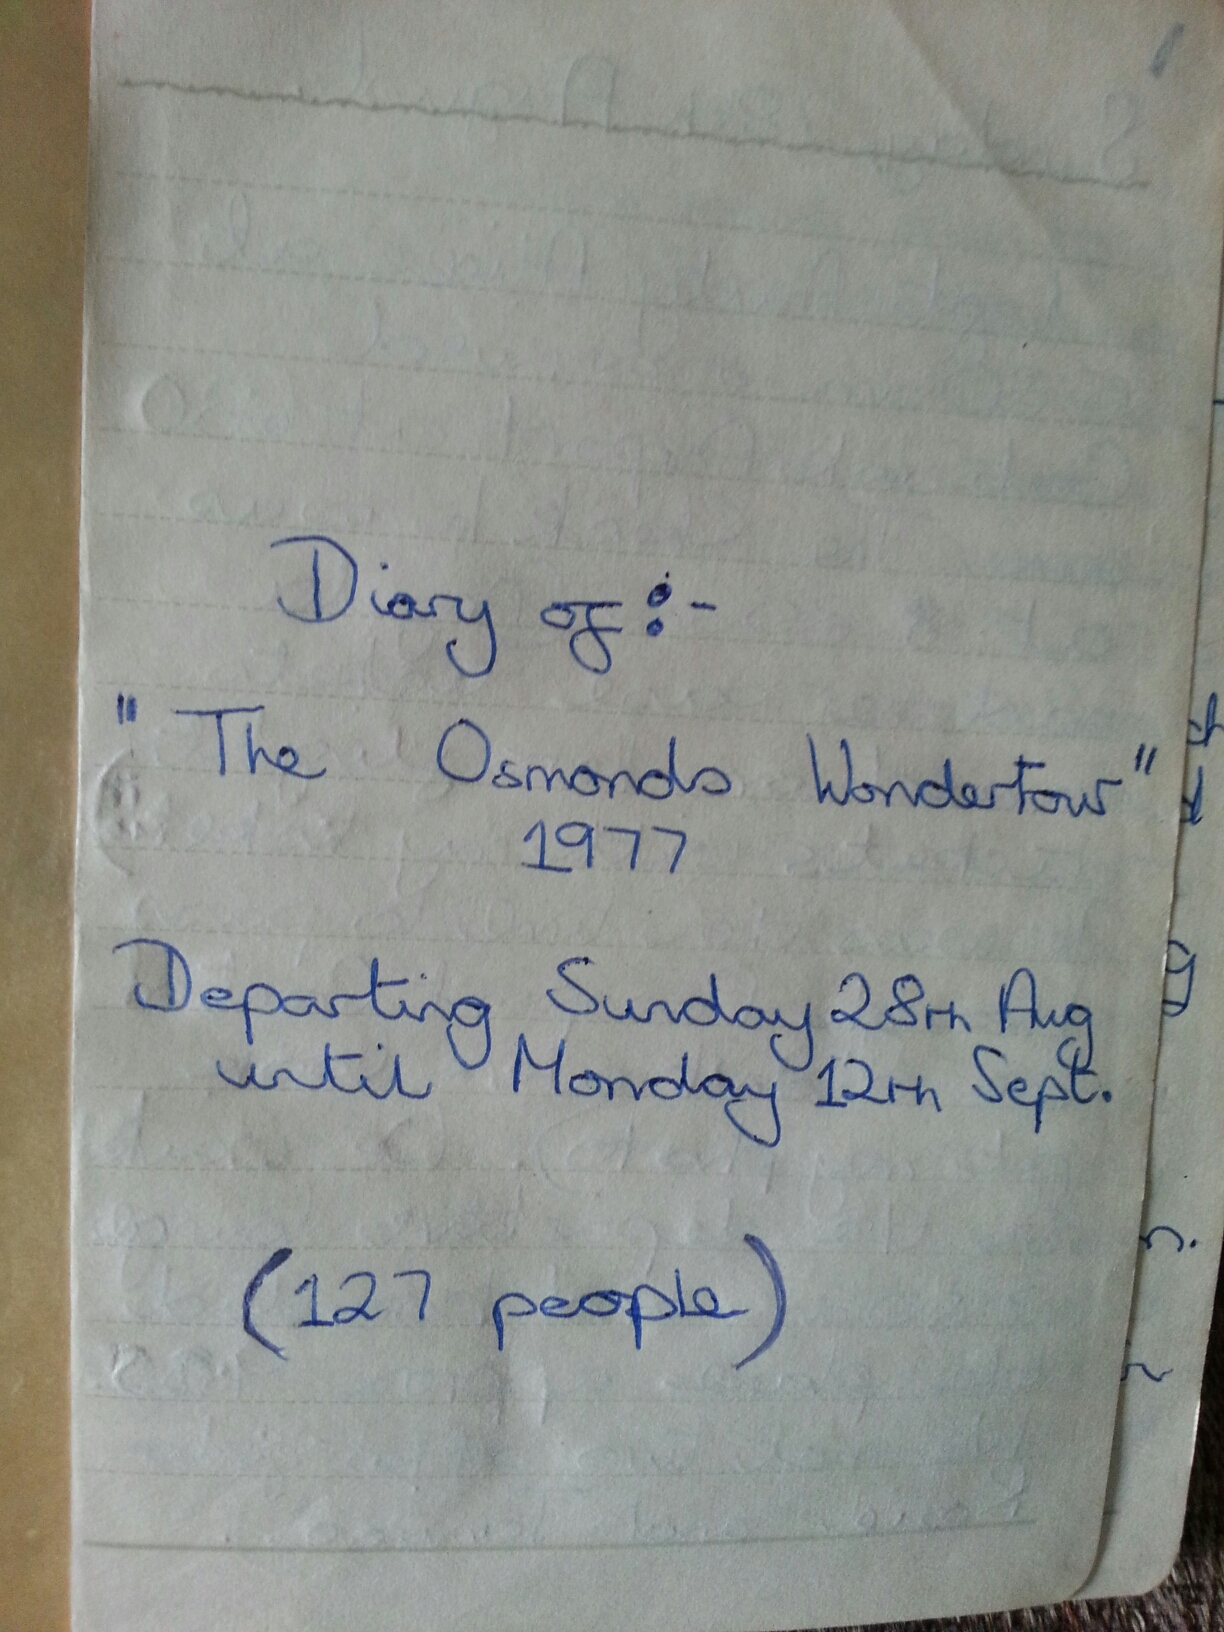 Diary of :-
" The Osmonds Wondertour"
1977
Departing Sunday 28th Aug
until Monday 12th Sept.
(127 people)